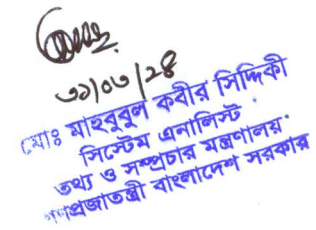 ৩১/০৩/২৪
মোঃ মাহবুবুল কবীর সিদ্দিকী
সিস্টেম এনালিস্ট
তথ্য ও সম্প্রচার মন্ত্রণালয়
গণপ্রজাতন্ত্রী বাংলাদেশ সরকার